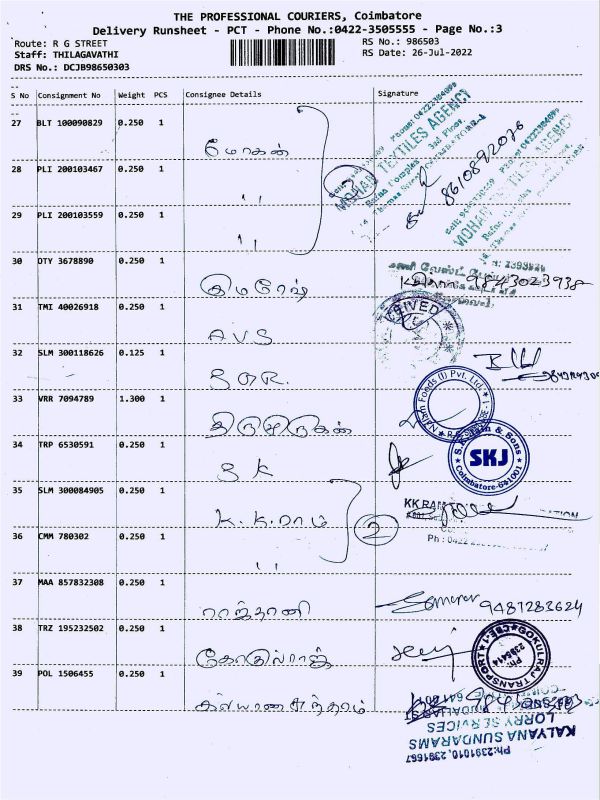 THE PROFESSIONAL COURIERS, Coimbatore
Delivery Runsheet - PCT - Phone No.:0422-3505555 - Page No.:3
Route: R G STREET RS No.: 986503
Staff: THILAGAVATHI RS Date: 26-Jul-2022
DRS No.: DCJB98650303
S No Consignment No Weight PCS Consignee Details Signature
27 BLT 100090829 0.250 1
மோகன்
MOHAN TEXTILES AGENCY
8610892076
28 PLI 200103467 0.250 1
" 3
29 PLI 200103559 0.250 1
"
30 OTY 3678890 0.250 1
குமரேஷ் 9843023938
31 TMI 40026918 0.250 1
A.V.S
32 SLM 300118626 0.125 1
S.O.R.
33 VRR 7094789 1.300 1
திருமுருகன்
Foods (I) Pvt. Ltd.
34 TRP 6530591 0.250 1
S K
& Sons
SKJ
Coimbatore-641001
35 SLM 300084905 0.250 1
K.K.ராம்
KK RAM
36 CMM 780302 0.250 1
" 2
Ph : 0422
37 MAA 857832308 0.250 1
ராஜ்தானி 9487283624
38 TRZ 195232502 0.250 1
கோகுல்ராஜ்
GOKULRAJ TRANSPORT
CBE-1
39 POL 1506455 0.250 1
கல்யாணசுந்தரம்
KALYANA SUNDARAMS
LORRY SERVICES
Ph:2391010, 2391667